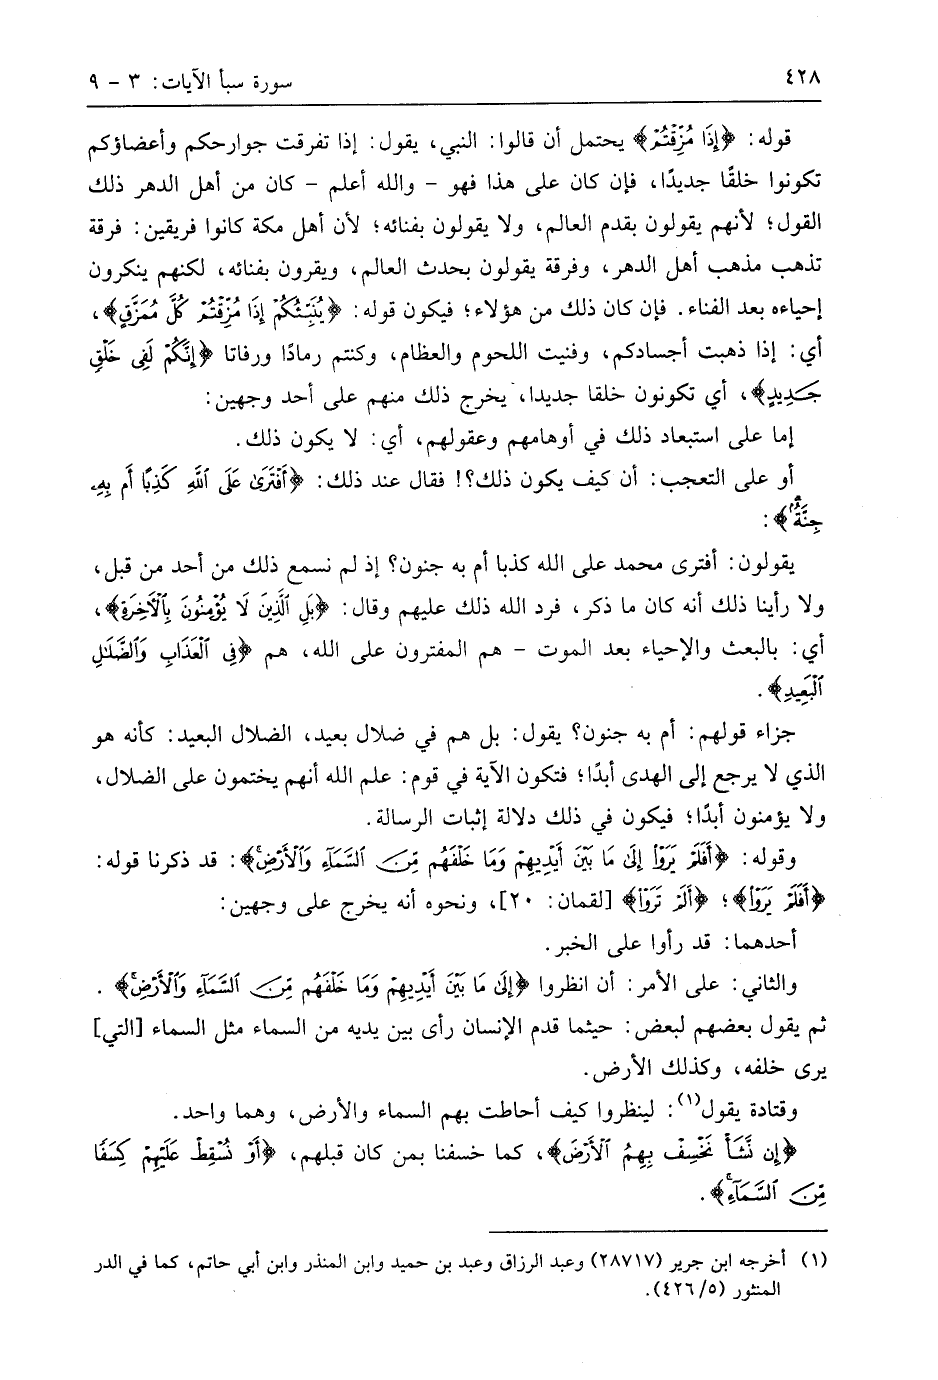 ٤٢٨ سورة سبأ الآيات: ٣ - ٩
قوله: ﴿إِذَا مُزِّقْتُمْ﴾ يحتمل أن قالوا: النبي، يقول: إذا تفرقت جوارحكم وأعضاؤكم
تكونوا خلقًا جديدًا، فإن كان على هذا فهو - والله أعلم - كان من أهل الدهر ذلك
القول؛ لأنهم يقولون بقدم العالم، ولا يقولون بفنائه؛ لأن أهل مكة كانوا فريقين: فرقة
تذهب مذهب أهل الدهر، وفرقة يقولون بحدث العالم، ويقرون بفنائه، لكنهم ينكرون
إحياءه بعد الفناء. فإن كان ذلك من هؤلاء؛ فيكون قوله: ﴿يُنَبِّئُكُمْ إِذَا مُزِّقْتُمْ كُلَّ مُمَزَّقٍ﴾،
أي: إذا ذهبت أجسادكم، وفنيت اللحوم والعظام، وكنتم رمادًا ورفاتا ﴿إِنَّكُمْ لَفِى خَلْقٍ
جَدِيدٍ﴾، أي تكونون خلقا جديدا، يخرج ذلك منهم على أحد وجهين:
إما على استبعاد ذلك في أوهامهم وعقولهم، أي: لا يكون ذلك.
أو على التعجب: أن كيف يكون ذلك؟! فقال عند ذلك: ﴿أَفْتَرَىٰ عَلَى ٱللَّهِ كَذِبًا أَم بِهِۦ
جِنَّةٌۗ﴾:
يقولون: أفترى محمد على الله كذبا أم به جنون؟ إذ لم نسمع ذلك من أحد من قبل،
ولا رأينا ذلك أنه كان ما ذكر، فرد الله ذلك عليهم وقال: ﴿بَلِ ٱلَّذِينَ لَا يُؤْمِنُونَ بِٱلْأَخِرَةِ﴾،
أي: بالبعث والإحياء بعد الموت - هم المفترون على الله، هم ﴿فِى ٱلْعَذَابِ وَٱلضَّلَٰلِ
ٱلْبَعِيدِ﴾.
جزاء قولهم: أم به جنون؟ يقول: بل هم في ضلال بعيد، الضلال البعيد: كأنه هو
الذي لا يرجع إلى الهدى أبدًا؛ فتكون الآية في قوم: علم الله أنهم يختمون على الضلال،
ولا يؤمنون أبدًا؛ فيكون في ذلك دلالة إثبات الرسالة.
وقوله: ﴿أَفَلَمْ يَرَوْا۟ إِلَىٰ مَا بَيْنَ أَيْدِيهِمْ وَمَا خَلْفَهُم مِّنَ ٱلسَّمَآءِ وَٱلْأَرْضِۚ﴾: قد ذكرنا قوله:
﴿أَفَلَمْ يَرَوْا۟﴾؛ ﴿أَلَمْ تَرَوْا۟﴾ [لقمان: ٢٠]، ونحوه أنه يخرج على وجهين:
أحدهما: قد رأوا على الخبر.
والثاني: على الأمر: أن انظروا ﴿إِلَىٰ مَا بَيْنَ أَيْدِيهِمْ وَمَا خَلْفَهُم مِّنَ ٱلسَّمَآءِ وَٱلْأَرْضِۚ﴾.
ثم يقول بعضهم لبعض: حيثما قدم الإنسان رأى بين يديه من السماء مثل السماء [التي]
يرى خلفه، وكذلك الأرض.
وقتادة يقول(١): لينظروا كيف أحاطت بهم السماء والأرض، وهما واحد.
﴿إِن نَّشَأْ نَخْسِفْ بِهِمُ ٱلْأَرْضَ﴾، كما خسفنا بمن كان قبلهم، ﴿أَوْ نُسْقِطْ عَلَيْهِمْ كِسَفًا
مِّنَ ٱلسَّمَآءِۚ﴾.
(١) أخرجه ابن جرير (٢٨٧١٧) وعبد الرزاق وعبد بن حميد وابن المنذر وابن أبي حاتم، كما في الدر
المنثور (٤٢٦/٥).